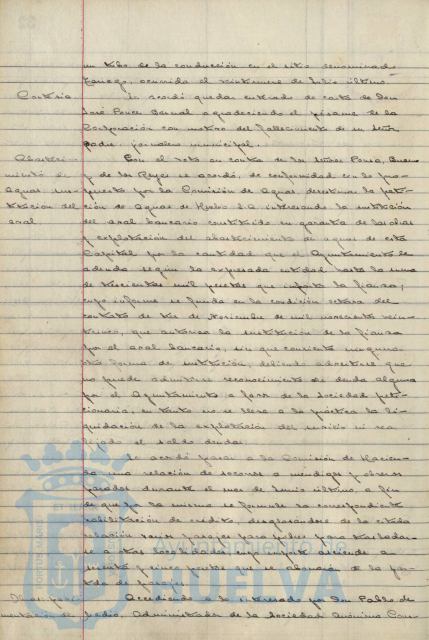 un tubo de la conducción en el sitio denominado
ocurrida el veintinueve de Julio último.
Cortesía Se acordó quedar enterado de carta de Don
José Ponce Bernal agradeciendo el pésame de la
Corporación con motivo del fallecimiento de su Señor
padre, jornalero municipal.
Abasteci- Con el voto en contra de los Señores Ponce, Bueno
miento de y de los Reyes se acordó, de conformidad con lo pro-
aguas sus- puesto por la Comisión de Aguas desestimar la peti-
titución del ción de Aguas de Huelva S.A. interesando la sustitución
aval del aval bancario constituido en garantía de las obras
y explotación del abastecimiento de aguas de esta
Capital por la cantidad que el Ayuntamiento le
adeuda según la expresada entidad hasta la suma
de trescientas mil pesetas que importa la fianza,
cuyo informe se funda en la condición octava del
contrato de tres de Noviembre de mil novecientos vein-
tiuno, que autoriza la sustitución de la fianza
por el aval bancario, sin que consienta ninguna
otra forma de sustitución, debiendo advertirse que
no puede admitirse reconocimiento de deuda alguna
por el Ayuntamiento a favor de la Sociedad peti-
cionaria, en tanto no se lleve a la práctica la li-
quidación de la explotación del servicio ni sea
fijado el saldo deudor.
Se acordó pasar a la Comisión de Hacien-
da una relación de socorros a mendigos y obreros
parados durante el mes de Junio último, a fin
de que por la misma se formule la correspondiente
habilitación de crédito, desglosándose de la citada
relación varios pasajes para traslada-
rse a otras localidades cuyo importe asciende a
y cinco pesetas que se abonarán de la par-
tida de pasajes.
Accediendo a lo interesado por Don Pablo de
Administrador de la Sociedad Anónima Cons-
Ayuntamiento de
HUELVA